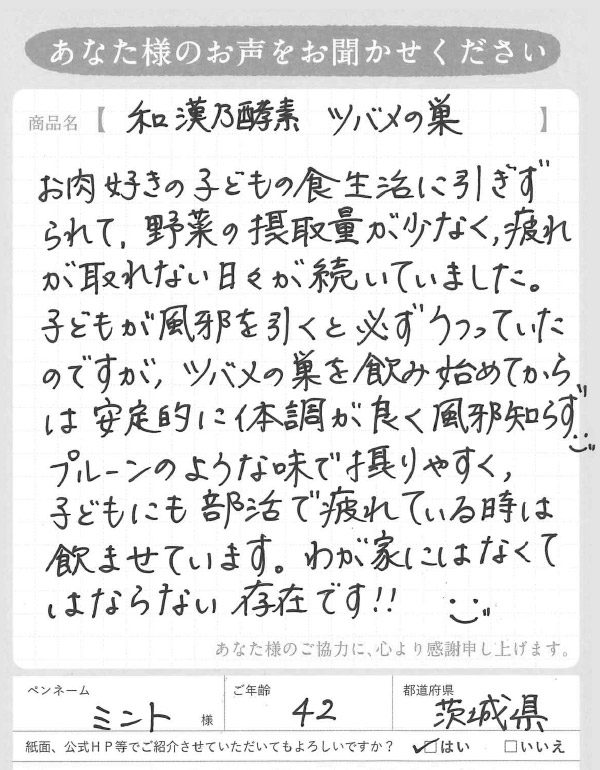 あなた様のお声をお聞かせください
商品名【 和漢乃酵素 ツバメの巣 】
お肉好きの子どもの食生活に引きず
られて、野菜の摂取量が少なく、疲れ
が取れない日々が続いていました。
子どもが風邪を引くと必ずうつっていた
のですが、ツバメの巣を飲み始めてから
は安定的に体調が良く風邪知らず
プルーンのような味で摂りやすく、
子どもにも部活で疲れている時は
飲ませています。わが家にはなくて
はならない存在です!!
あなた様のご協力に、心より感謝申し上げます。
ペンネーム ミント 様 ご年齢 42 都道府県 茨城県
紙面、公式HP等でご紹介させていただいてもよろしいですか? ☑はい □いいえ